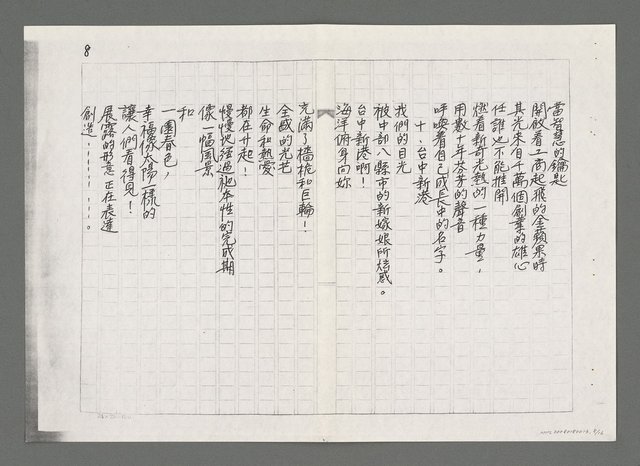 當智慧的鑰匙
開啟着工商起飛的金蘋果時
其光来自千萬個創業的雄心
任誰也不能推開
燃着新奇光熱的一種力量，
用數十年芬芳的聲音
呼喚着自己成長中的名字。
十、台中新港
我們的目光
被中部八縣市的新嫁娘所炫惑。
台中新港啊！
海洋俯身向妳
充滿了檣桅和巨輪！
全盛的光芒
生命和熱愛
都在升起！
慢慢地經過祂本性的完成期
像一幅風景
和
一園春色，
幸福像太陽一樣的
讓人們看得見！
展露的形意正在表達
創造……………。
8